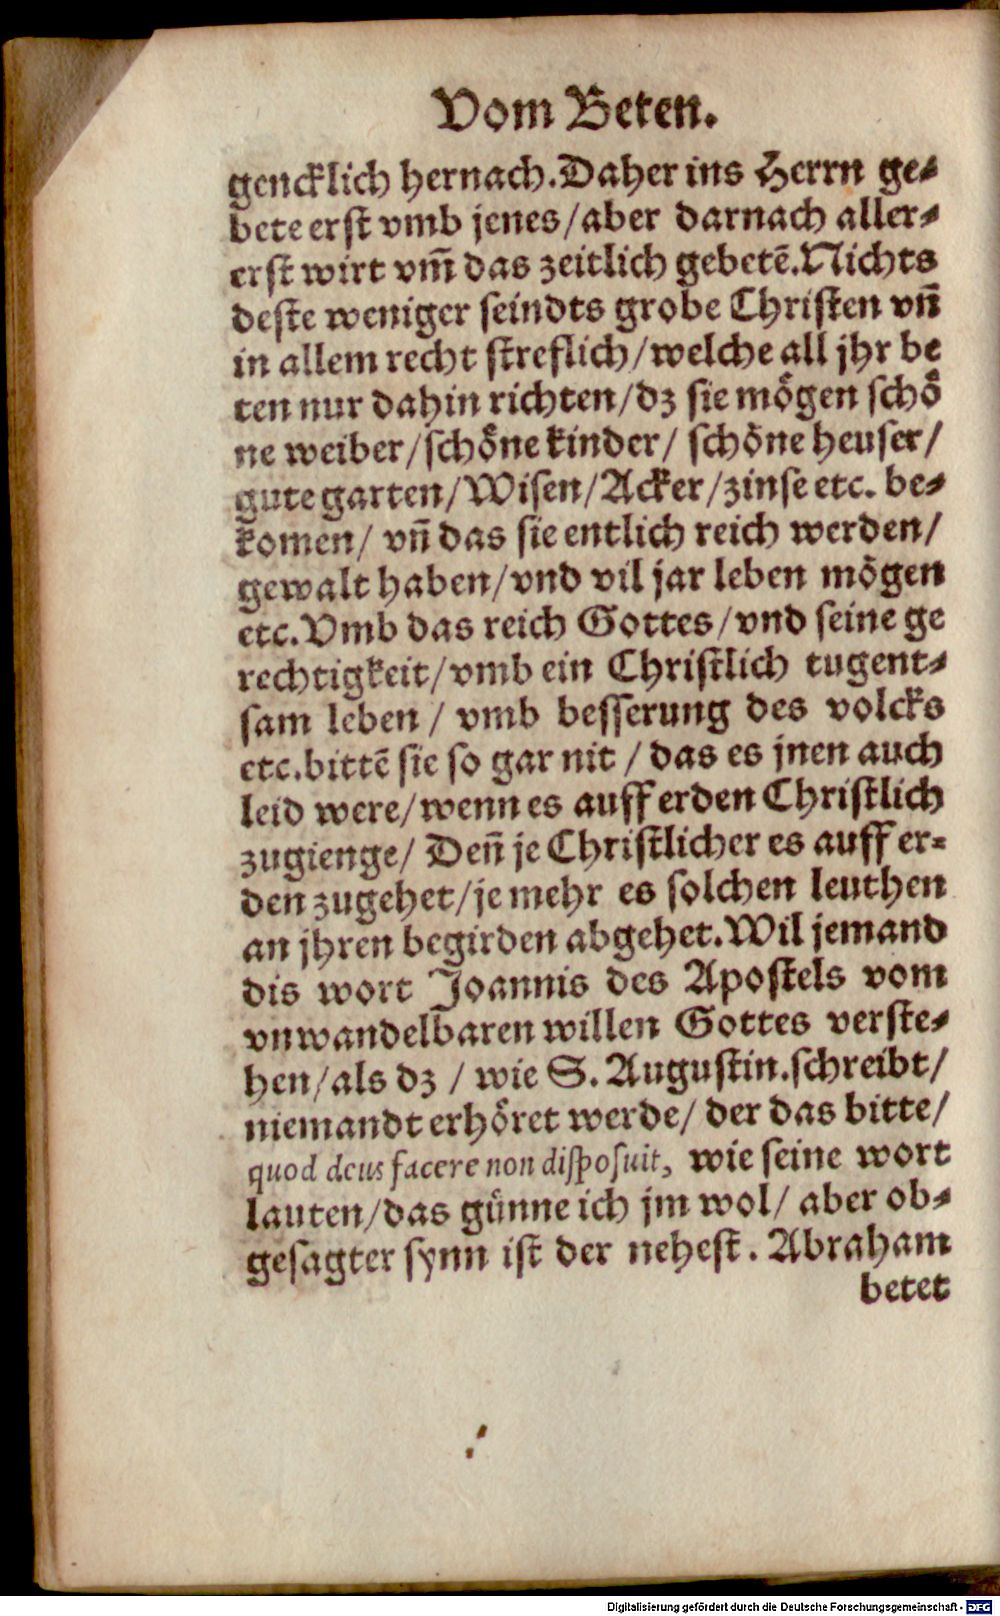 Vom Beten.
gencklich hernach. Daher ins Herrn ge⸗
bete erst vmb jenes / aber darnach aller⸗
erst wirt vm̃ das zeitlich gebetẽ. Nichts
deste weniger seindts grobe Christen vñ
in allem recht streflich / welche all jhr be
ten nur dahin richten / dz sie mögen schö
ne weiber / schöne kinder / schöne heuser /
gute garten / Wisen / Acker / zinse etc. be⸗
komen / vñ das sie entlich reich werden /
gewalt haben / vnd vil jar leben mögen
etc. Vmb das reich Gottes / vnd seine ge
rechtigkeit / vmb ein Christlich tugent⸗
sam leben / vmb besserung des volcks
etc. bittẽ sie so gar nit / das es jnen auch
leid were / wenn es auff erden Christlich
zugienge / Deñ je Christlicher es auff er⸗
den zugehet / je mehr es solchen leuthen
an jhren begirden abgehet. Wil jemand
dis wort Joannis des Apostels vom
vnwandelbaren willen Gottes verste⸗
hen / als dz / wie S. Augustin. schreibt /
niemandt erhöret werde / der das bitte /
quod deus facere non disposuit, wie seine wort
lauten / das günne ich jm wol / aber ob⸗
gesagter synn ist der nehest. Abraham
betet
Digitalisierung gefördert durch die Deutsche Forschungsgemeinschaft - DFG